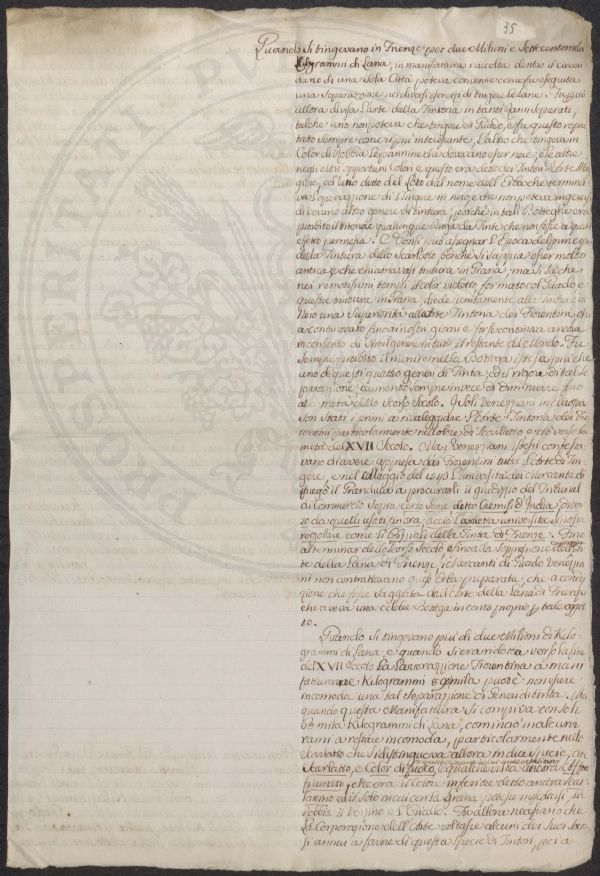 35
Quando si tingevano in Firenze per due Milioni e Settecentomila
Kilogrammi di Lana, in manifattura raccolta dentro il circon
dario di una sola Città poteva convenire come fu eseguita
una Separazione nei diversi esercizj di tingere le lane. Fu perciò
allora divisa l'arte della Tintoria in tanti Rami Separati,
talche uno non poteva che tingere di Guado, e fu questo repu
tato sempre come il più interessante, l'altro che tingeva in
Color di Robbia le pannine che dovevano esser nere, e le altre
negli altri opportuni Colori e questo era detto dei Tintori d'Arte Mag
giore, ed uno detto del Loto dal nome dell'Erba che termina
va l'operazione di tingere in nero e che non poteva ingerirsi
di veruno altro genere di tintura; poiche in tali Botteghe era
proibito il ritenere qualunque Droga da Tinte che non fosse a quell'
effetto permessa. Non si può assegnar l'Epoca del principio
della Tintura dello Scarlatto benche si sappia esser molto
antica, e che chiamavasi tintura in Grana, ma si sa che
nei remotissimi tempi il color vidotto formato col Guado e
questa tintura in Grana, diede unitamente alla Tintura in
Nero una Superiorità alle altre Tintoria dei Fiorentini, che
a continovato fino ai nostri giorni e forse continua ancora
in confronto di simil genere in tutto il restante del Mondo. Fu
sempre proibito il riunire nella Bottega istessa più che
uno di questi quattro generi di Tinta, ed il rigore di tal se
parazione aumentò sempre invece di diminuire fino
alla metà dello scorso Secolo. I Soli Veneziani in Europa
son stati i primi a rivaleggiare l'Arte di Tintoria dei Fio
rentini particolarmente nell'opre di Scarlatto e ciò verso la
metà del XVII Secolo. Ma i Veneziani istessi confessa
vano di avere appresa dai Fiorentini tutta l'arte di Tin
gere, e nel Maggio del 1643 l'Università dei Mercanti di
pregò il Granduca a procurarli il giudizio del Tribunal
di Commercio sopra certo seme detto Cremisi d'India, diver
so da quelli usati finora, acciò l'acedeta università si possa
regolare come li Offiziali della Tinta di Firenze. Fino
al terminar dello scorso Secolo e fino alla Soppressione dell'Ar
te della Lana di Firenze, i Mercanti di Guado Venezia
ni non contrattavano quest'Erba preparata, che a condi
zione che fosse saggiata dall'Arte della Lana di Firenze
che aveva una celebre Bottega in conto proprio per tale ogget
to.
Quando si tingevano più di due Milioni di Kilo
grammi di Lana, e quando si era ridotta verso la fine
del XVII Secolo La Lavorazione Fiorentina a mani
fatturare Kilogrammi mila puote non essere
incomoda una tal Separazione di Generi di tinta. Ma
quando questa Manifattura si compiva con soli
68 mila Kilogrammi di Lana, cominciò in alcuni
rami a restare incomoda, particolarmente nello
Scarlatto che si distingueva allora in due specie, cioè
Scarlatto, e Color di fuoco, e qualche volta ancora Coffetta
fiammato, ed era il Color inferiore detto ancora Scar
lattino ed il solo in cui con la grana potesse mischiarsi la
robbia il Verzino e l'Oricello. Fu allora necessario che
la Corporazione dell'Arte voltasse alcuni dei suoi scar
si annui a favore di questa specie di Tintori, per a